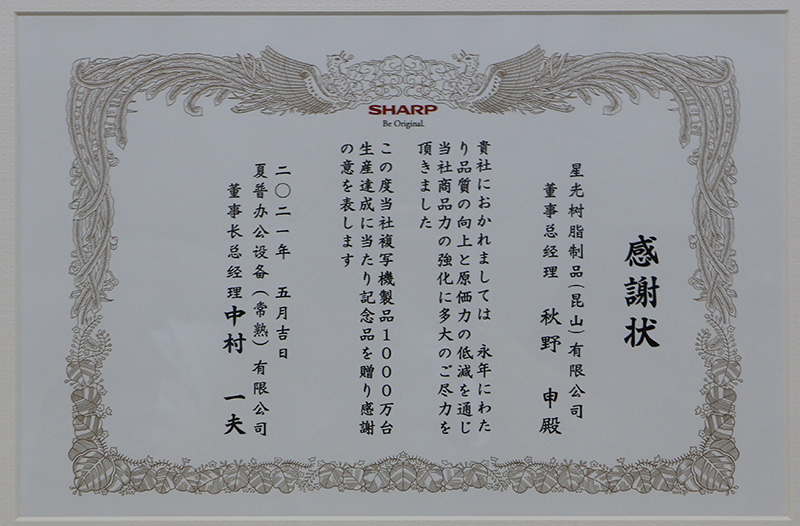 SHARP
Be Original.
感謝状
星光树脂制品(昆山)有限公司
董事总经理 秋野 申殿
貴社におかれましては 永年にわた
り品質の向上と原価力の低減を通じ
当社商品力の強化に多大のご尽力を
頂きました
この度当社複写機製品1000万台
生産達成に当たり記念品を贈り感謝
の意を表します
二〇二一年 五月吉日
夏普办公设备(常熟)有限公司
董事长总经理 中村 一夫